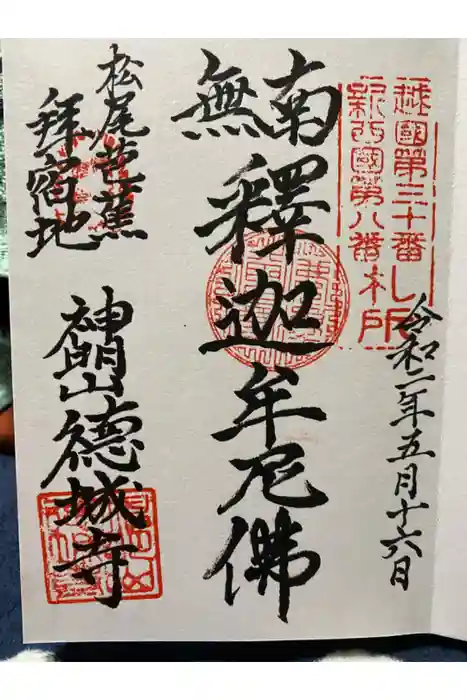 越國第三十番
新西國第八番
札所
令和二年五月十六日
南無釋迦牟尼佛
松尾芭蕉
拝宿地
神明山徳城寺